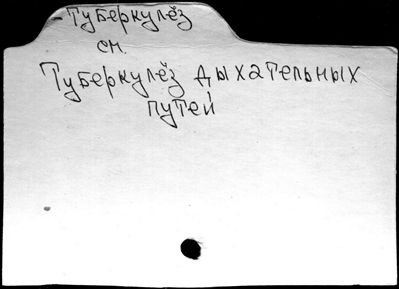 Туберкулёз
см.
Туберкулёз дыхательных
путей